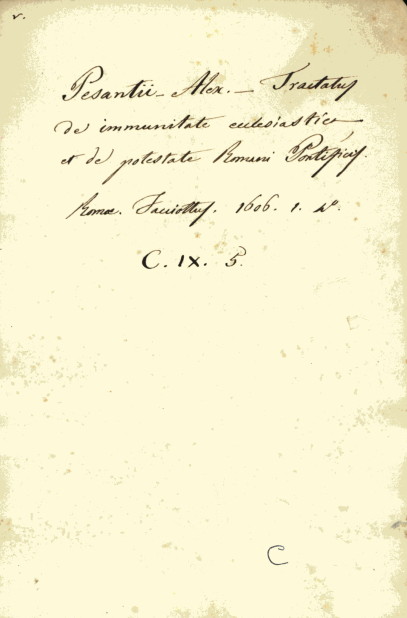 v.
Pesantii - Alex. - Tractatus
de immunitate ecclesiastica
et de potestate Romani Pontificis.
Romæ. Facciottus. 1606. 1. 4°.
C. IX. 5.
C